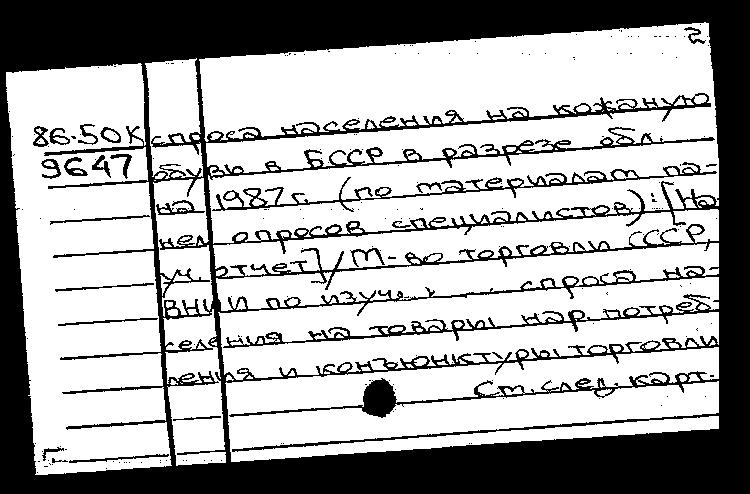 2
86-50К спроса населения на кожаную
9647 обувь в БССР в разрезе обл.
на 1987г. (по материалам па=
нел опросов специалистов): [На
уч. отчет] / М-во торговли СССР,
ВНИИ по изуч. спроса на=
селения на товары нар. потреб=
ления и конъюнктуры торговли
Ст. след. карт.